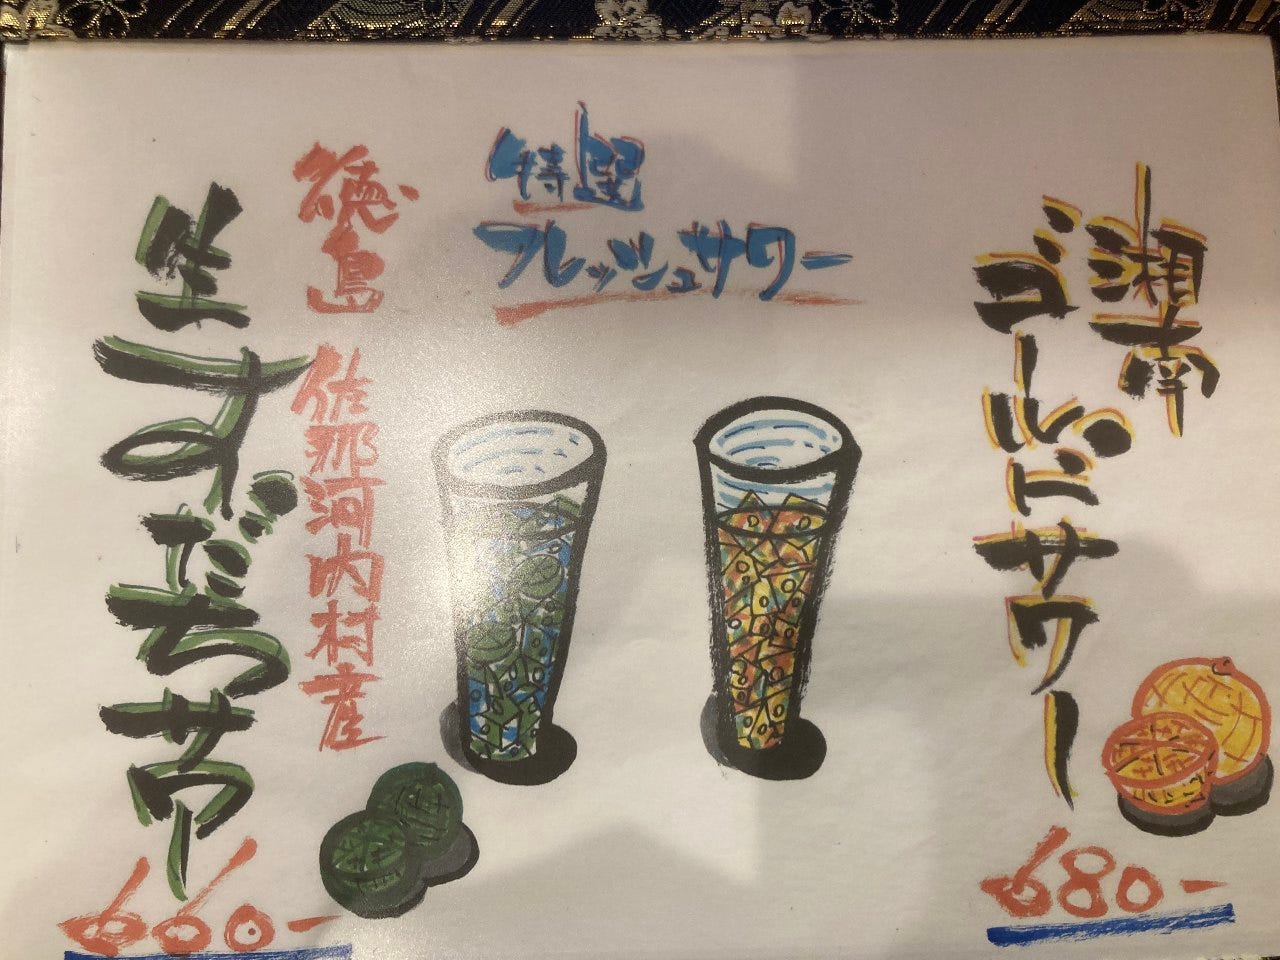 特選
フレッシュサワー
湘南
ゴールドサワー
680-
徳島 佐那河内村産
生すだちサワー
660-